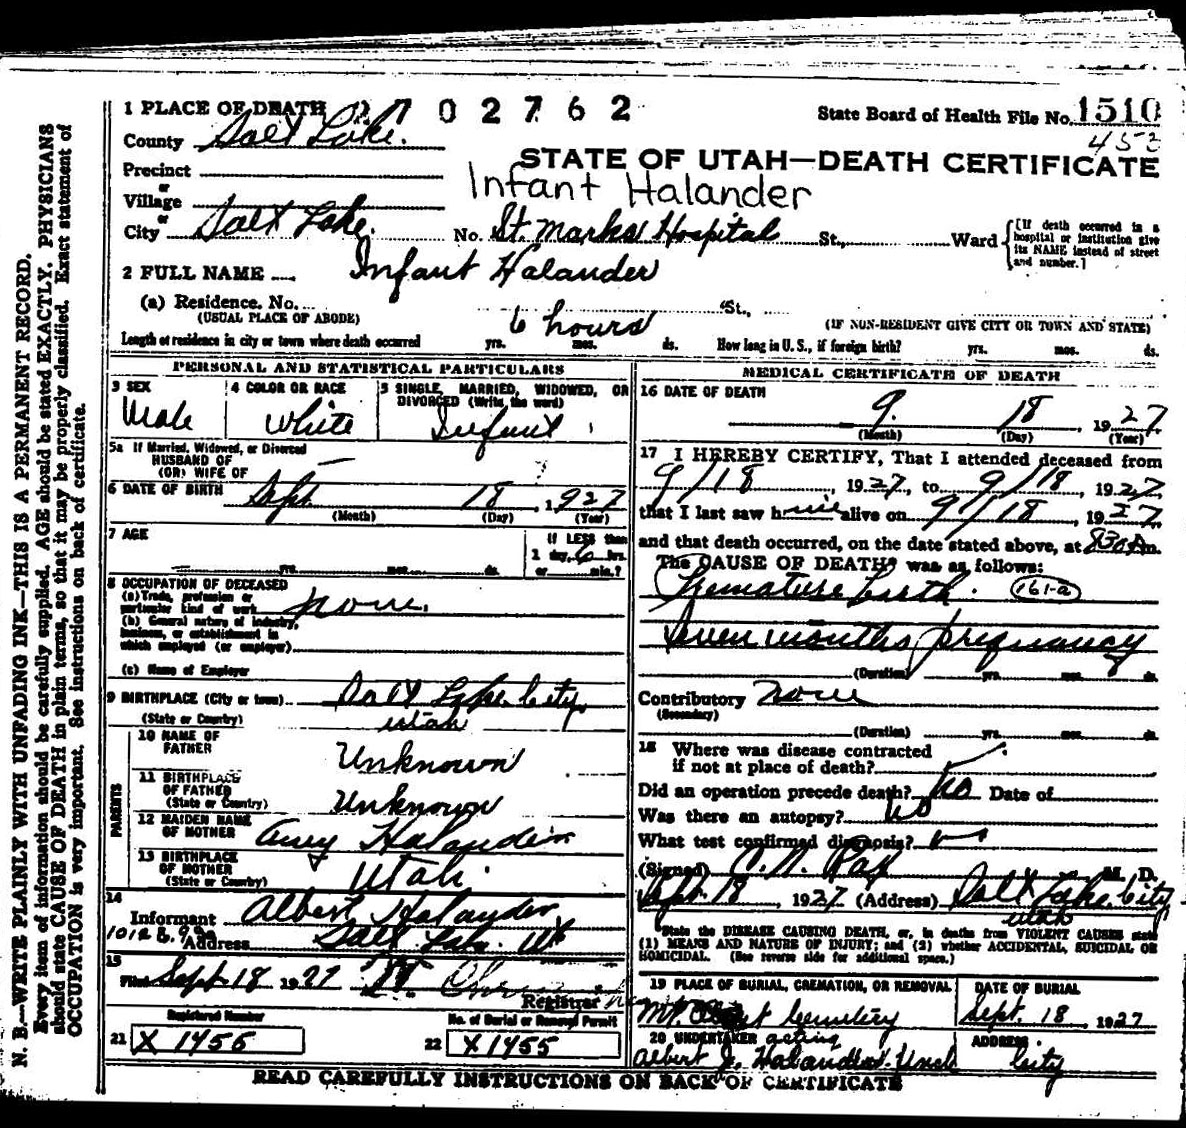 1 PLACE OF DEATH 2702762
State Board of Health File No. 1510
County Salt Lake.
453
STATE OF UTAH—DEATH CERTIFICATE
Precinct
Infant Halander
or
Village
or
City Salt Lake. No. St. Marks Hospital St., Ward
[If death occurred in a hospital or institution give its NAME instead of street and number.]
2 FULL NAME Infant Halander
(a) Residence. No. St.,
(USUAL PLACE OF ABODE) (IF NON-RESIDENT GIVE CITY OR TOWN AND STATE)
6 hours
Length of residence in city or town where death occurred yrs. mos. ds. How long in U. S., if foreign birth? yrs. mos. ds.
PERSONAL AND STATISTICAL PARTICULARS
3 SEX
Male
4 COLOR OR RACE
White
5 SINGLE, MARRIED, WIDOWED, OR
DIVORCED (Write the word)
Infant
5a If Married, Widowed, or Divorced
HUSBAND OF
(OR) WIFE OF
6 DATE OF BIRTH Sept. 18, 1927
(Month) (Day) (Year)
7 AGE
If LESS than
1 day, 6 hrs.
yrs. mos. ds. or min.?
8 OCCUPATION OF DECEASED
(a) Trade, profession or
particular kind of work none.
(b) General nature of industry,
business, or establishment in
which employed (or employer)
(c) Name of Employer
9 BIRTHPLACE (City or town) Salt Lake City,
(State or Country) Utah
PARENTS
10 NAME OF
FATHER Unknown
11 BIRTHPLACE
OF FATHER
(State or Country) Unknown
12 MAIDEN NAME
OF MOTHER Amy Halander
13 BIRTHPLACE
OF MOTHER
(State or Country) Utah.
14
Informant Albert Halander
1012 E. 9th So
Address Salt Lake. Ut
15
Filed Sept 18 1927
Registrar
Registered Number
21 X 1456
No. of Burial or Removal Permit
22 X 1455
MEDICAL CERTIFICATE OF DEATH
16 DATE OF DEATH
9. 18 1927
(Month) (Day) (Year)
17 I HEREBY CERTIFY, That I attended deceased from
9/18, 1927, to 9/18, 1927,
that I last saw him alive on 9/18, 1927,
and that death occurred, on the date stated above, at 830 A m.
The CAUSE OF DEATH* was as follows:
Premature birth. 161-a
Seven months pregnancy
(Duration) yrs. mos. ds.
Contributory none
(Secondary)
(Duration) yrs. mos. ds.
18 Where was disease contracted
if not at place of death?
Did an operation precede death? no Date of
Was there an autopsy? no
What test confirmed diagnosis?
(Signed) C. N. Ray M. D.
Sept. 18, 1927 (Address) Salt Lake City,
Utah
*State the DISEASE CAUSING DEATH, or, in deaths from VIOLENT CAUSES state
(1) MEANS AND NATURE OF INJURY; and (2) whether ACCIDENTAL, SUICIDAL OR
HOMICIDAL. (See reverse side for additional space.)
19 PLACE OF BURIAL, CREMATION, OR REMOVAL
Mt. Cemetery
DATE OF BURIAL
Sept. 18, 1927
20 UNDERTAKER acting
Albert J. Halander Uncle
ADDRESS
City
READ CAREFULLY INSTRUCTIONS ON BACK OF CERTIFICATE
N. B.—WRITE PLAINLY WITH UNFADING INK—THIS IS A PERMANENT RECORD.
Every item of information should be carefully supplied. AGE should be stated EXACTLY. PHYSICIANS
should state CAUSE OF DEATH in plain terms, so that it may be properly classified. Exact statement of
OCCUPATION is very important. See instructions on back of certificate.